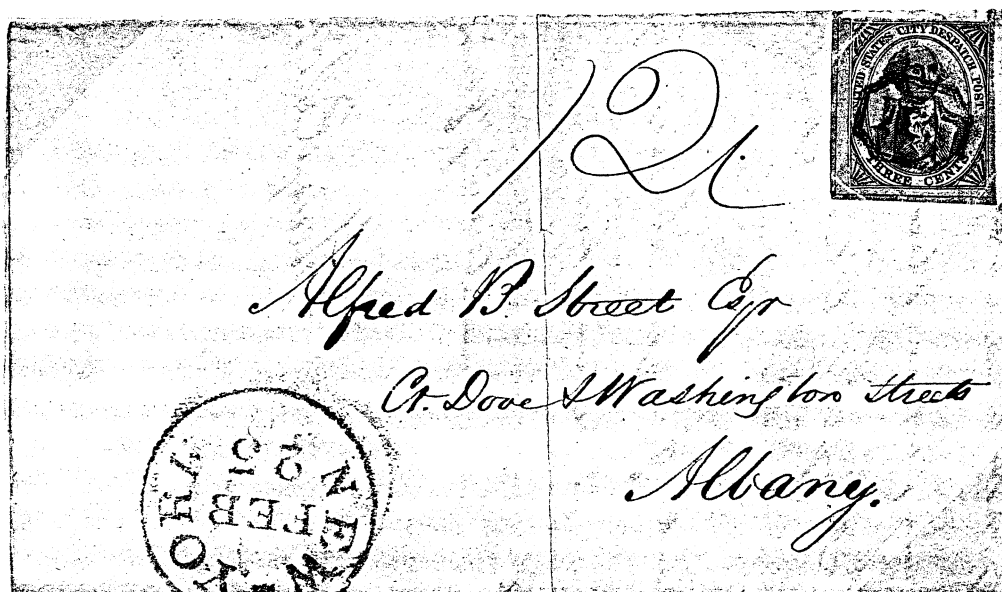 UNITED STATES CITY DESPATCH POST
THREE CENTS
12½
Alfred B. Street Esqr
Cr. Dove & Washington Streets
Albany.
NEW-YORK
FEB